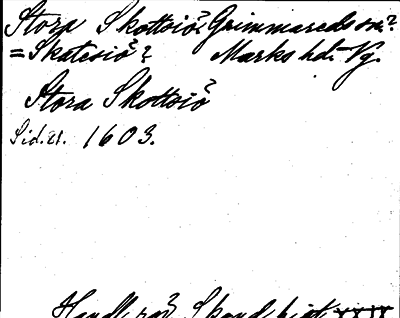 Stora Skottsiö? Grimmareds sn?
= Skatesiö? Marks hd. Vg.
Stora Skottsiö
Sid. 21. 1603.
Handl. rör. Skand. hist. XXIX